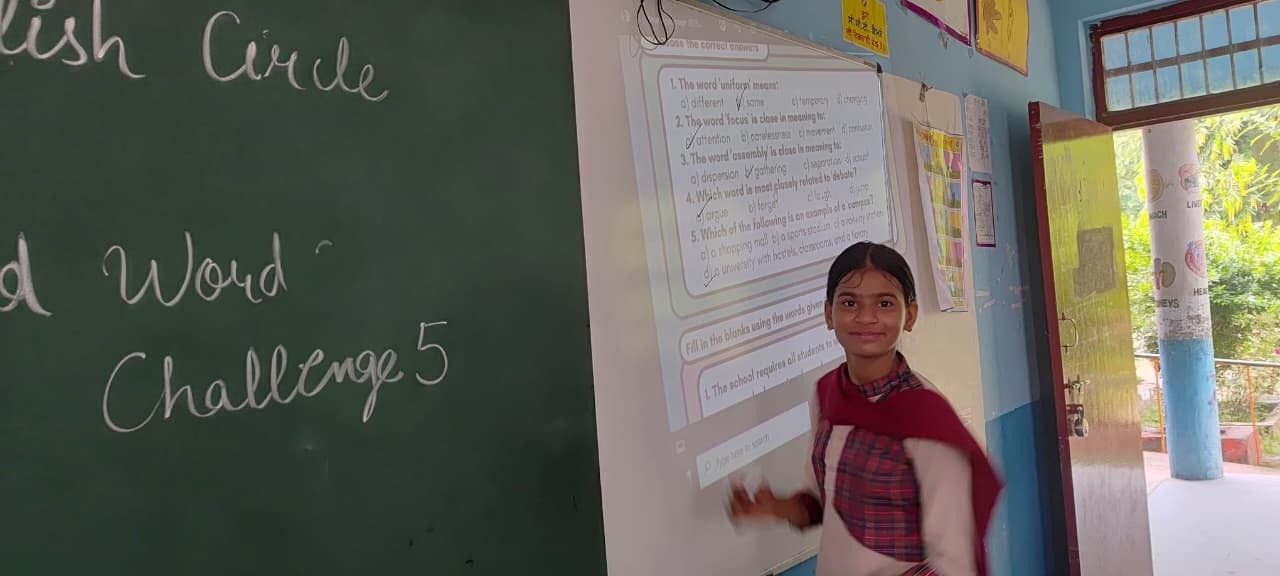 lish Circle
d Word
Challenge 5
ose the correct answers
1. The word 'uniform' means:
a) different b) same c) temporary d) changing
2. The word 'focus' is close in meaning to:
attention b) carelessness c) movement d) confusion
3. The word 'assembly' is close in meaning to:
a) dispersion b) gathering c) separation d) school
4. Which word is most closely related to 'debate'?
a) argue b) forget c) laugh d) jump
5. Which of the following is an example of a 'campus'?
a) a shopping mall b) a sports stadium c) a railway station
d) a university with hostels, classrooms, and a library
Fill in the blanks using the words given
1. The school requires all students to
Type here to search
LIVE
HEA